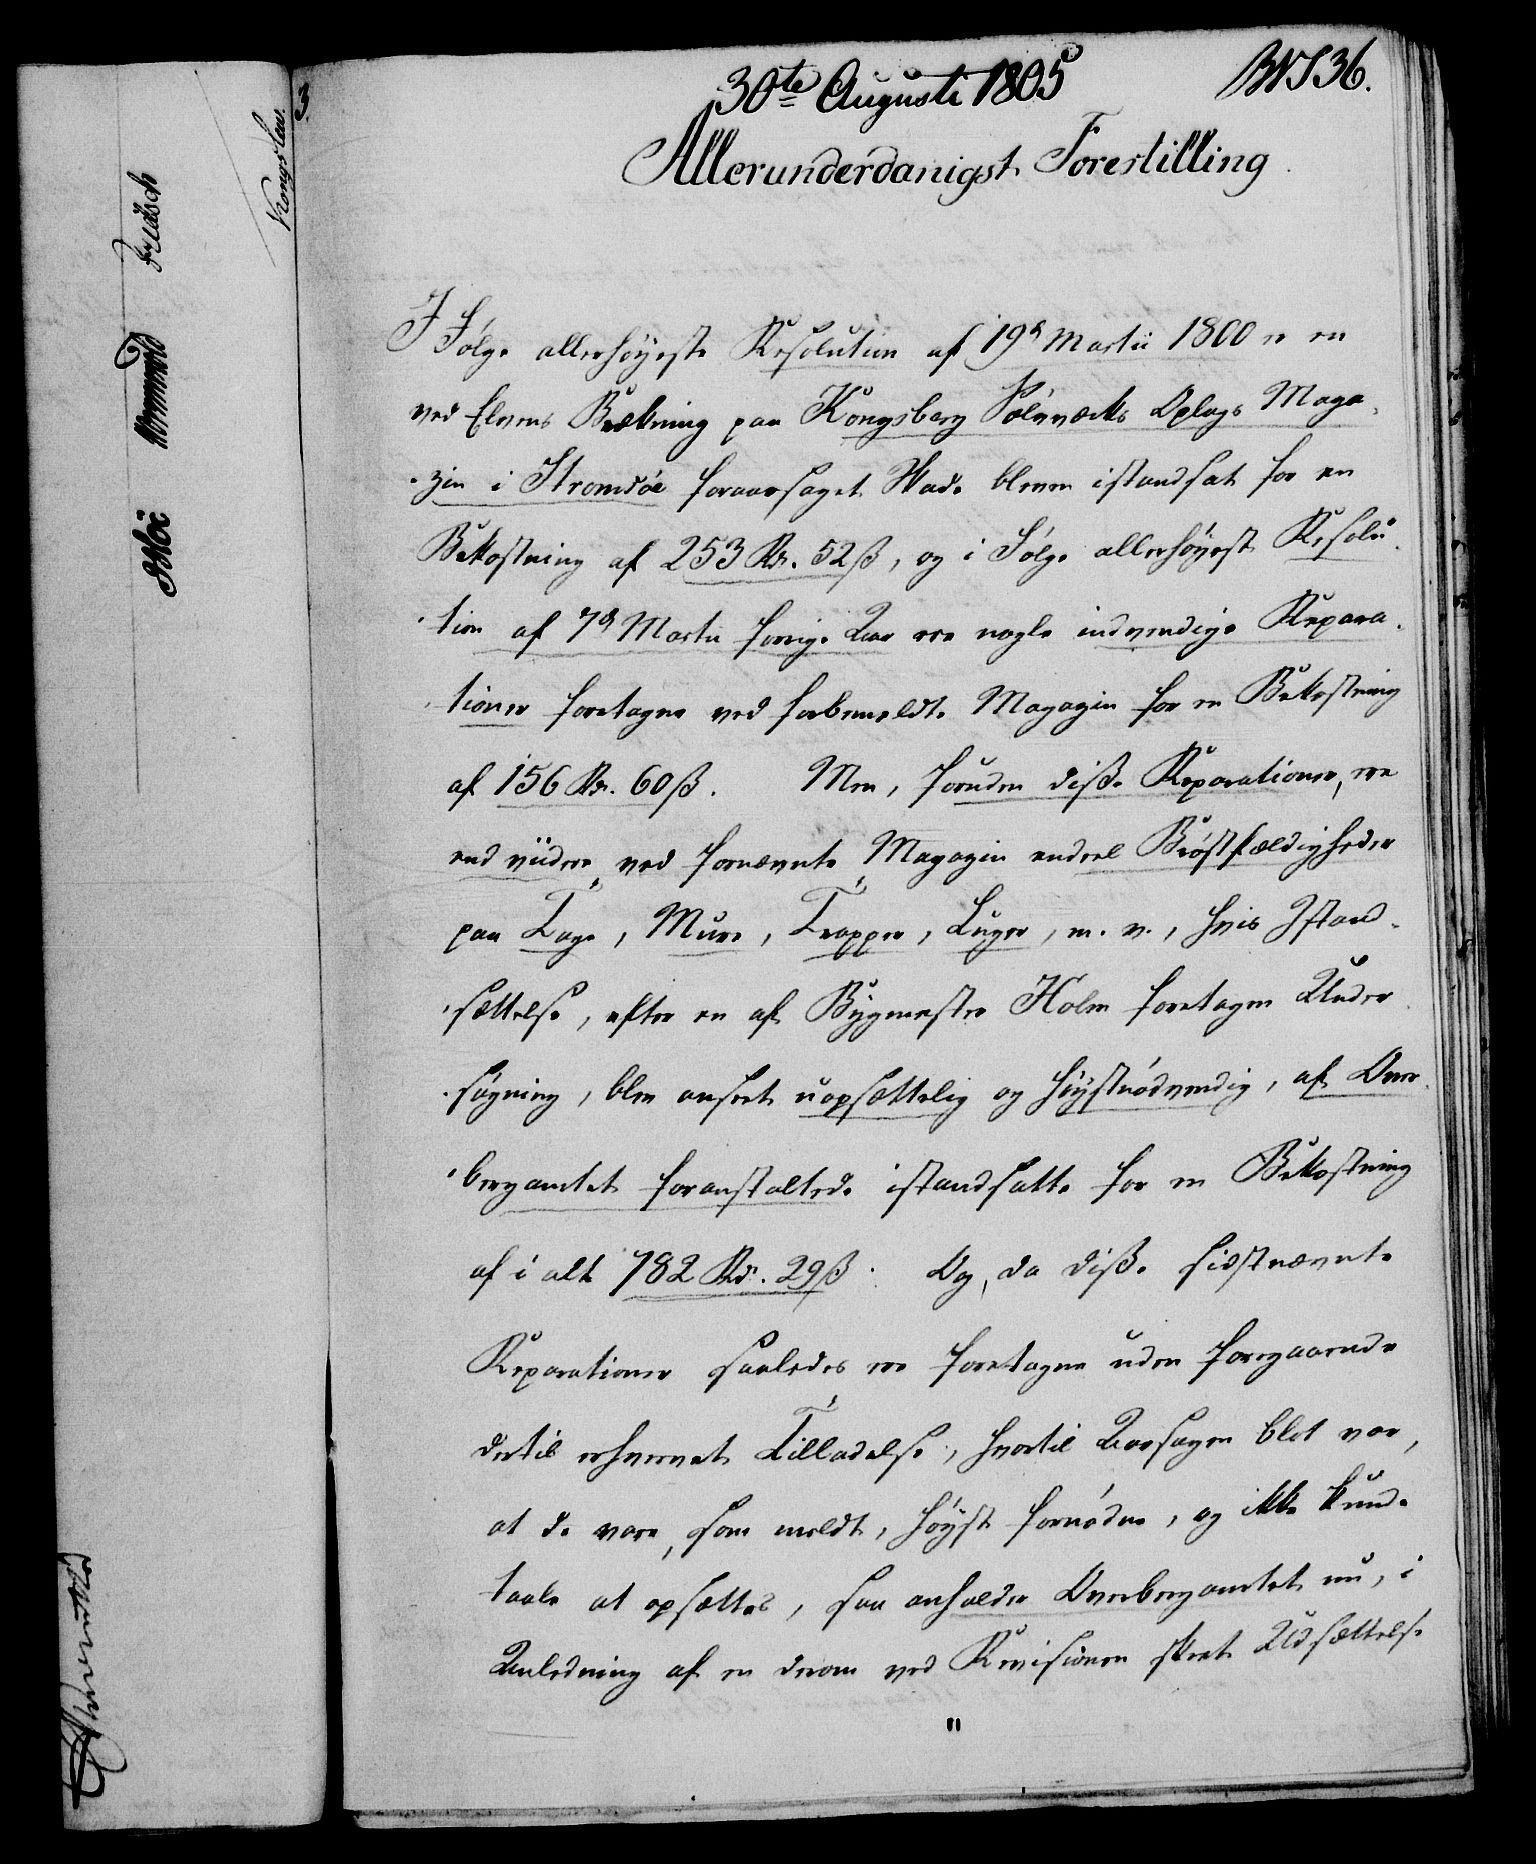 30te Augusti 1805
BNS 36.
Allerunderdanigst Forestilling
I Følge allerhøyeste Resolution af 19d Martii 1800 er en
ved Elvens Brækning paa Kongsberg Sølvværks Oplags Maga-
-zin i Strømsøe foraarsaget Skade bleven istandsat for en
Bekostning af 253 Rdr. 52 ß, og i Følge allerhøyest Resolu-
-tion af 7d Martii forrige Aar ere nogle indvendige Repara-
-tioner foretagne ved forbemeldte Magazin for en Bekostning
af 156 Rdr. 60 ß. Men, foruden disse Reparationer, ere
end viidere ved fornævnte Magazin endeel Brøstfældigheder
paa Tage, Mure, Trapper, Luger, m. v., hvis Istand-
-sættelse, efter en af Bygmester Holm foretagen Under-
-søgning, blev anseet uopsættelig og høystnødvendig, af Over-
-bergamtet foranstaltede istandsatte for en Bekostning
af i alt 782 Rdr. 29 ß. Og, da disse sidstnævnte
Reparationer saaledes ere foretagne uden foregaaende
dertil erhvervet Tilladelse, hvortil Aarsagen blot var,
at de vare, som meldt, høyst fornødne, og ikke kunde
taale at opsættes, saa anholder Overbergamtet nu, i
Anledning af en derom ved Revisionen skeet Udsættelse
"
3
Kongslew.
Fridsch
Wormskiold